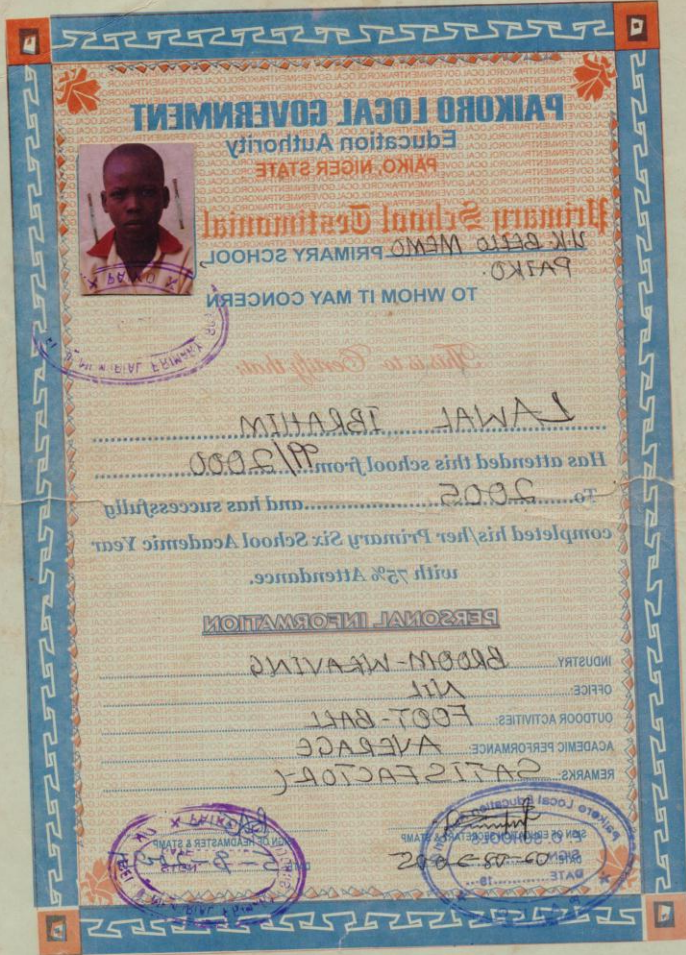 PAIKORO LOCAL GOVERNMENT
Education Authority
PAIKO, NIGER STATE
Primary School Testimonial
U.K BELLO MEMO PRIMARY SCHOOL,
PAIKO.
TO WHOM IT MAY CONCERN
This is to Certify that:
LAWAL IBRAHIM
Has attended this school from 99/2000
To 2005 and has successfully
completed his/her Primary Six School Academic Year
with 75% Attendance.
PERSONAL INFORMATION
INDUSTRY BROOM-WEAVING
OFFICE: NIL
OUTDOOR ACTIVITIES: FOOT-BALL
ACADEMIC PERFORMANCE: AVERAGE
REMARKS SATISFACTORY
SIGN OF EDUCATION SECRETARY & STAMP
SIGN OF HEADMASTER & STAMP
Paikoro Local Education
SCHOOLS
SIGN
DATE